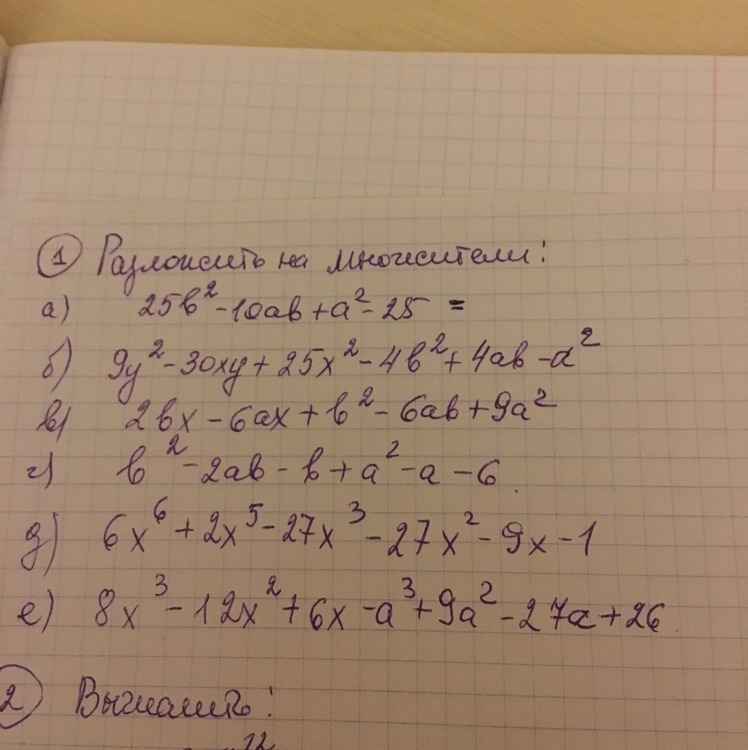 ① Разложить на множители:
а) 25b² - 10ab + a² - 25 =
б) 9y² - 30xy + 25x² - 4b² + 4ab - a²
в) 2bx - 6ax + b² - 6ab + 9a²
г) b² - 2ab - b + a² - a - 6.
д) 6x⁶ + 2x⁵ - 27x³ - 27x² - 9x - 1
е) 8x³ - 12x² + 6x - a³ + 9a² - 27a + 26.
② Вычислить:
12